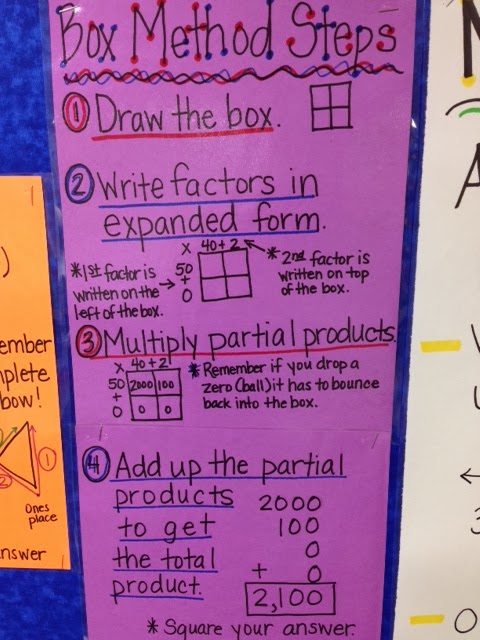 Box Method Steps
① Draw the box.
② Write factors in
expanded form.
x 40+2
50
+
0
*1st factor is
written on the
left of the box.
* 2nd factor is
written on top
of the box.
③ Multiply partial products.
x 40+2
50 2000 100
+
0 0 0
* Remember if you drop a
zero (ball) it has to bounce
back into the box.
④ Add up the partial
products
to get
the total
product.
2000
100
0
+ 0
2,100
* Square your answer.
)
ember
plete
bow!
①
2
Ones
place
nswer
A